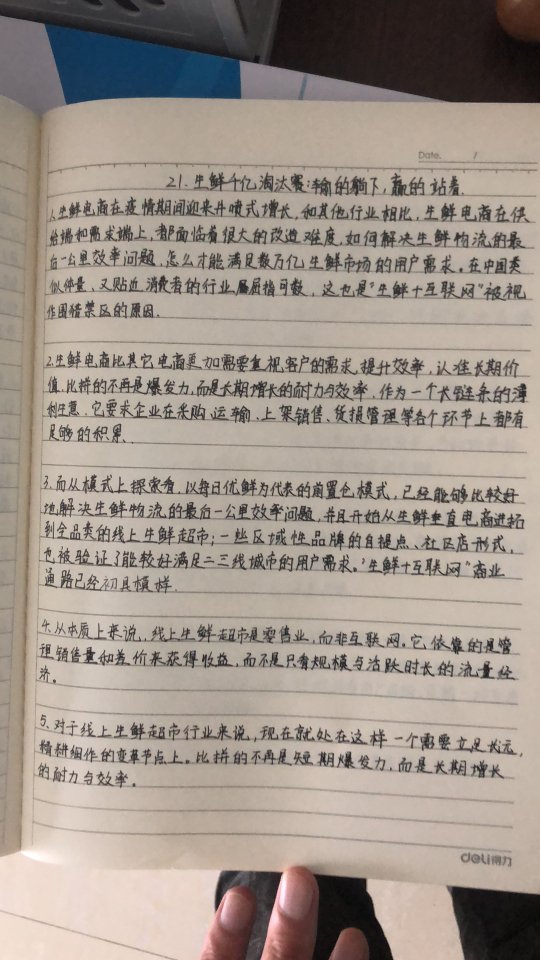 Date. /
21. 生鲜千亿淘汰赛:输的躺下,赢的站着.
1、生鲜电商在疫情期间迎来井喷式增长,和其他行业相比,生鲜电商在供
给端和需求端上,都面临着很大的改造难度,如何解决生鲜物流的最
后一公里效率问题,怎么才能满足数万亿生鲜市场的用户需求。在中国类
似体量、又贴近消费者的行业屈指可数,这也是“生鲜+互联网”被视
作围猎禁区的原因.
2.生鲜电商比其它电商更加需要重视客户的需求,提升效率,认准长期价
值,比拼的不再是爆发力,而是长期增长的耐力与效率,作为一个长链条的薄
利生意,它要求企业在采购、运输、上架销售、货损管理等各个环节上都有
足够的积累.
3.而从模式上探索看,以每日优鲜为代表的前置仓模式,已经能够比较好
地解决生鲜物流的最后一公里效率问题,并且开始从生鲜垂直电商进拓
到全品类的线上生鲜超市;一些区域性品牌的自提点、社区店形式,
也被验证了能较好满足二三线城市的用户需求。“生鲜+互联网”商业
通路已经初具模样.
4.从本质上来说,线上生鲜超市是零售业,而非互联网。它依靠的是管
理销售量和差价来获得收益,而不是只有规模与活跃时长的流量经
济。
5、对于线上生鲜超市行业来说,现在就处在这样一个需要立足长远,
精耕细作的变革节点上。比拼的不再是短期爆发力,而是长期增长
的耐力与效率。
deli得力